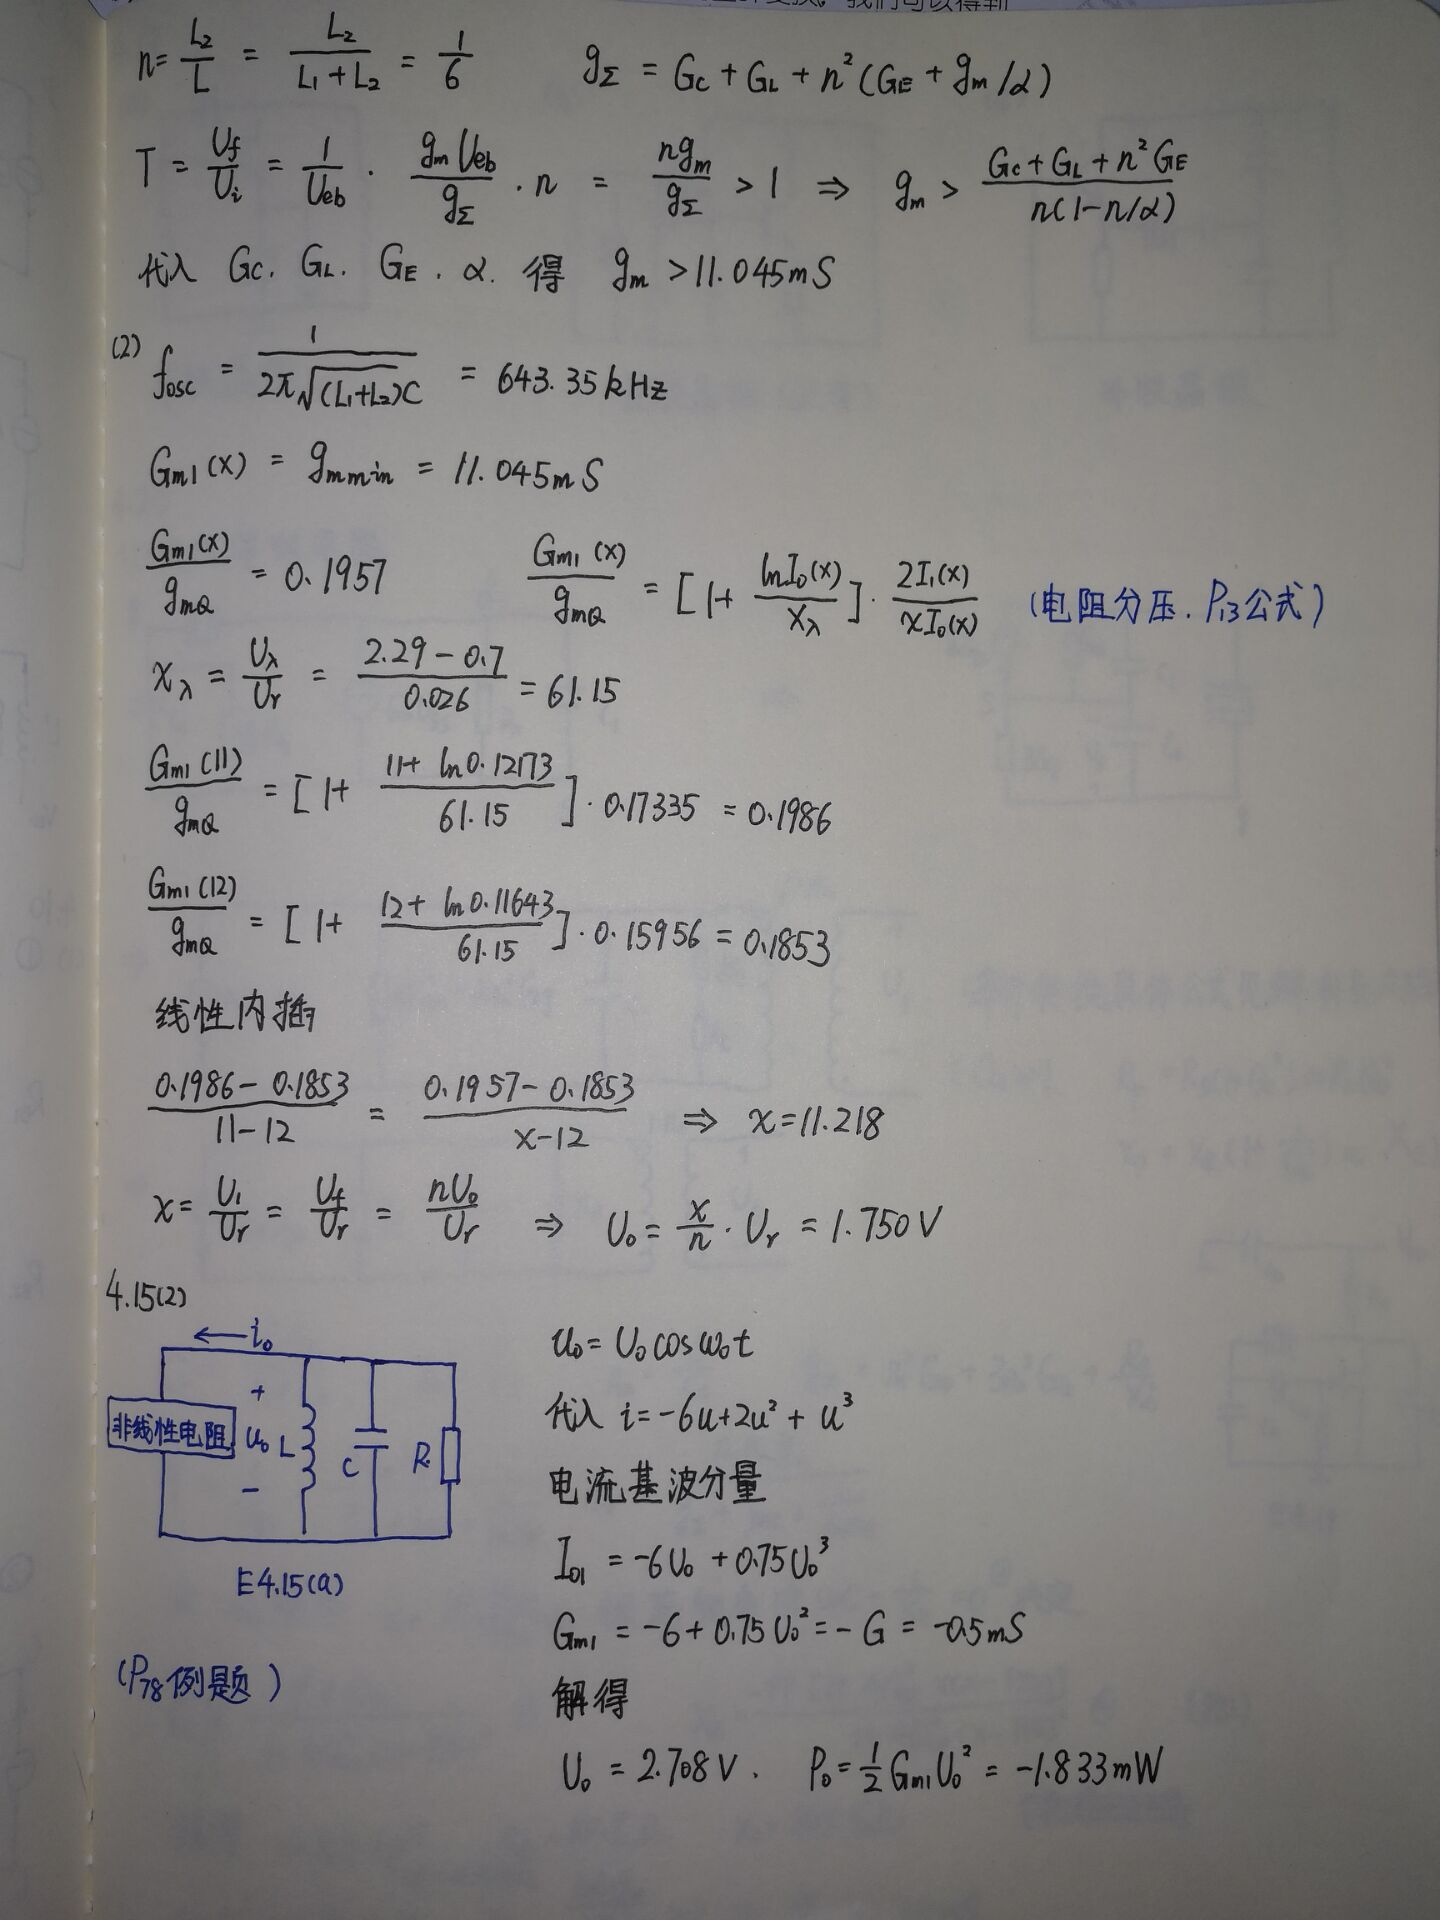 我们可以得到
n = L₂/L = L₂/(L₁+L₂) = 1/6 g_Σ = G_C + G_L + n²(G_E + g_m/α)
T = U_f/U_i = 1/U_eb · g_m U_eb/g_Σ · n = n g_m/g_Σ > 1 ⇒ g_m > (G_C + G_L + n²G_E)/(n(1-n/α))
代入 G_C. G_L. G_E. α. 得 g_m > 11.045mS
(2) f_osc = 1/(2π√((L₁+L₂)C)) = 643.35kHz
G_m1(x) = g_mmin = 11.045mS
G_m1(x)/g_mQ = 0.1957 G_m1(x)/g_mQ = [1+ lnI₀(x)/x_λ] · 2I₁(x)/(xI₀(x)) (电阻分压. P₁₃公式)
x_λ = U_λ/U_r = (2.29-0.7)/0.026 = 61.15
G_m1(11)/g_mQ = [1+ (11+ ln0.12173)/61.15] · 0.17335 = 0.1986
G_m1(12)/g_mQ = [1+ (12+ ln0.11643)/61.15] · 0.15956 = 0.1853
线性内插
(0.1986-0.1853)/(11-12) = (0.1957-0.1853)/(x-12) ⇒ x=11.218
x = U₁/U_r = U_f/U_r = nU₀/U_r ⇒ U₀ = x/n · U_r = 1.750V
4.15(2)
← i₀
+
非线性电阻 u₀ L C R
-
E4.15(a)
(P₇₈例题)
u₀ = U₀cosω₀t
代入 i=-6u+2u²+u³
电流基波分量
I₀₁ = -6U₀ + 0.75U₀³
G_m1 = -6 + 0.75U₀² = -G = -0.5mS
解得
U₀ = 2.708V. P₀ = 1/2 G_m1 U₀² = -1.833mW